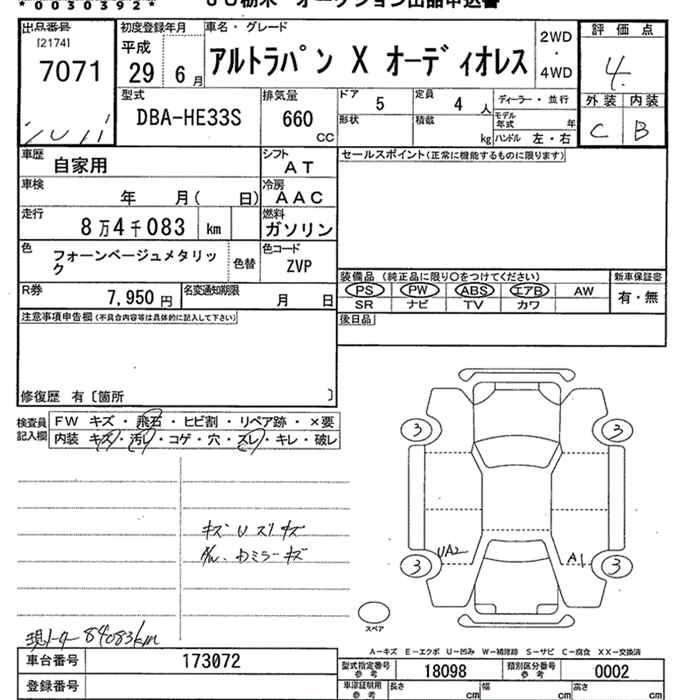 *0030392*
JU栃木 オークション出品申込書
出品番号
[2174]
7071
初度登録年月
平成
29 6 月
車名・グレード
アルトラパン X オーディオレス
2WD
・
4WD
評価点
4
外装 内装
C B
型式
DBA-HE33S
排気量
660
CC
ドア
5
定員
4 人
ディーラー・並行
形状
積載
kg
モデル年式 年
ハンドル 左・右
車歴
自家用
シフト
AT
セールスポイント(正常に機能するものに限ります)
車検
年 月( 日)
冷房
AAC
走行
8万4千083 km
燃料
ガソリン
色
フォーンベージュメタリック
色替
色コード
ZVP
装備品 (純正品に限り○をつけてください)
新車保証書
PS PW ABS エアB AW
有・無
SR ナビ TV カワ
R券
7,950 円
名変通知期限
月 日
後日品
注意事項申告欄(不具合内容等は具体的に記入して下さい)
修復歴 有〔箇所 〕
検査員記入欄
FW キズ・飛石・ヒビ割・リペア跡・×要
内装 キズ・汚レ・コゲ・穴・スレ・キレ・破レ
3 3
キズUスリキズ
ミラーキズ
UA2 A1
3 3
スペア
現メーター 84083km
A-キズ E-エクボ U-凹み W-補修跡 S-サビ C-腐食 XX-交換済
車台番号
173072
型式指定番号
参考
18098
類別区分番号
参考
0002
登録番号
車庫証明用
参考
長さ cm
幅 cm
高さ cm